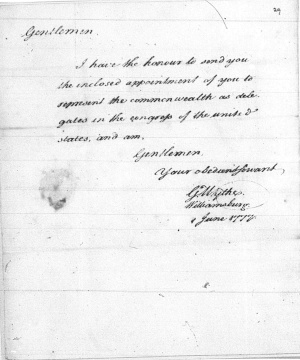 29
Gentlemen
I have the honour to send you
the inclosed appointment of you to
represent the commonwealth as dele-
gates in the congress of the united
states, and am,
Gentlemen
Your obedient servant,
G Wythe
Williamsburg
June 1777